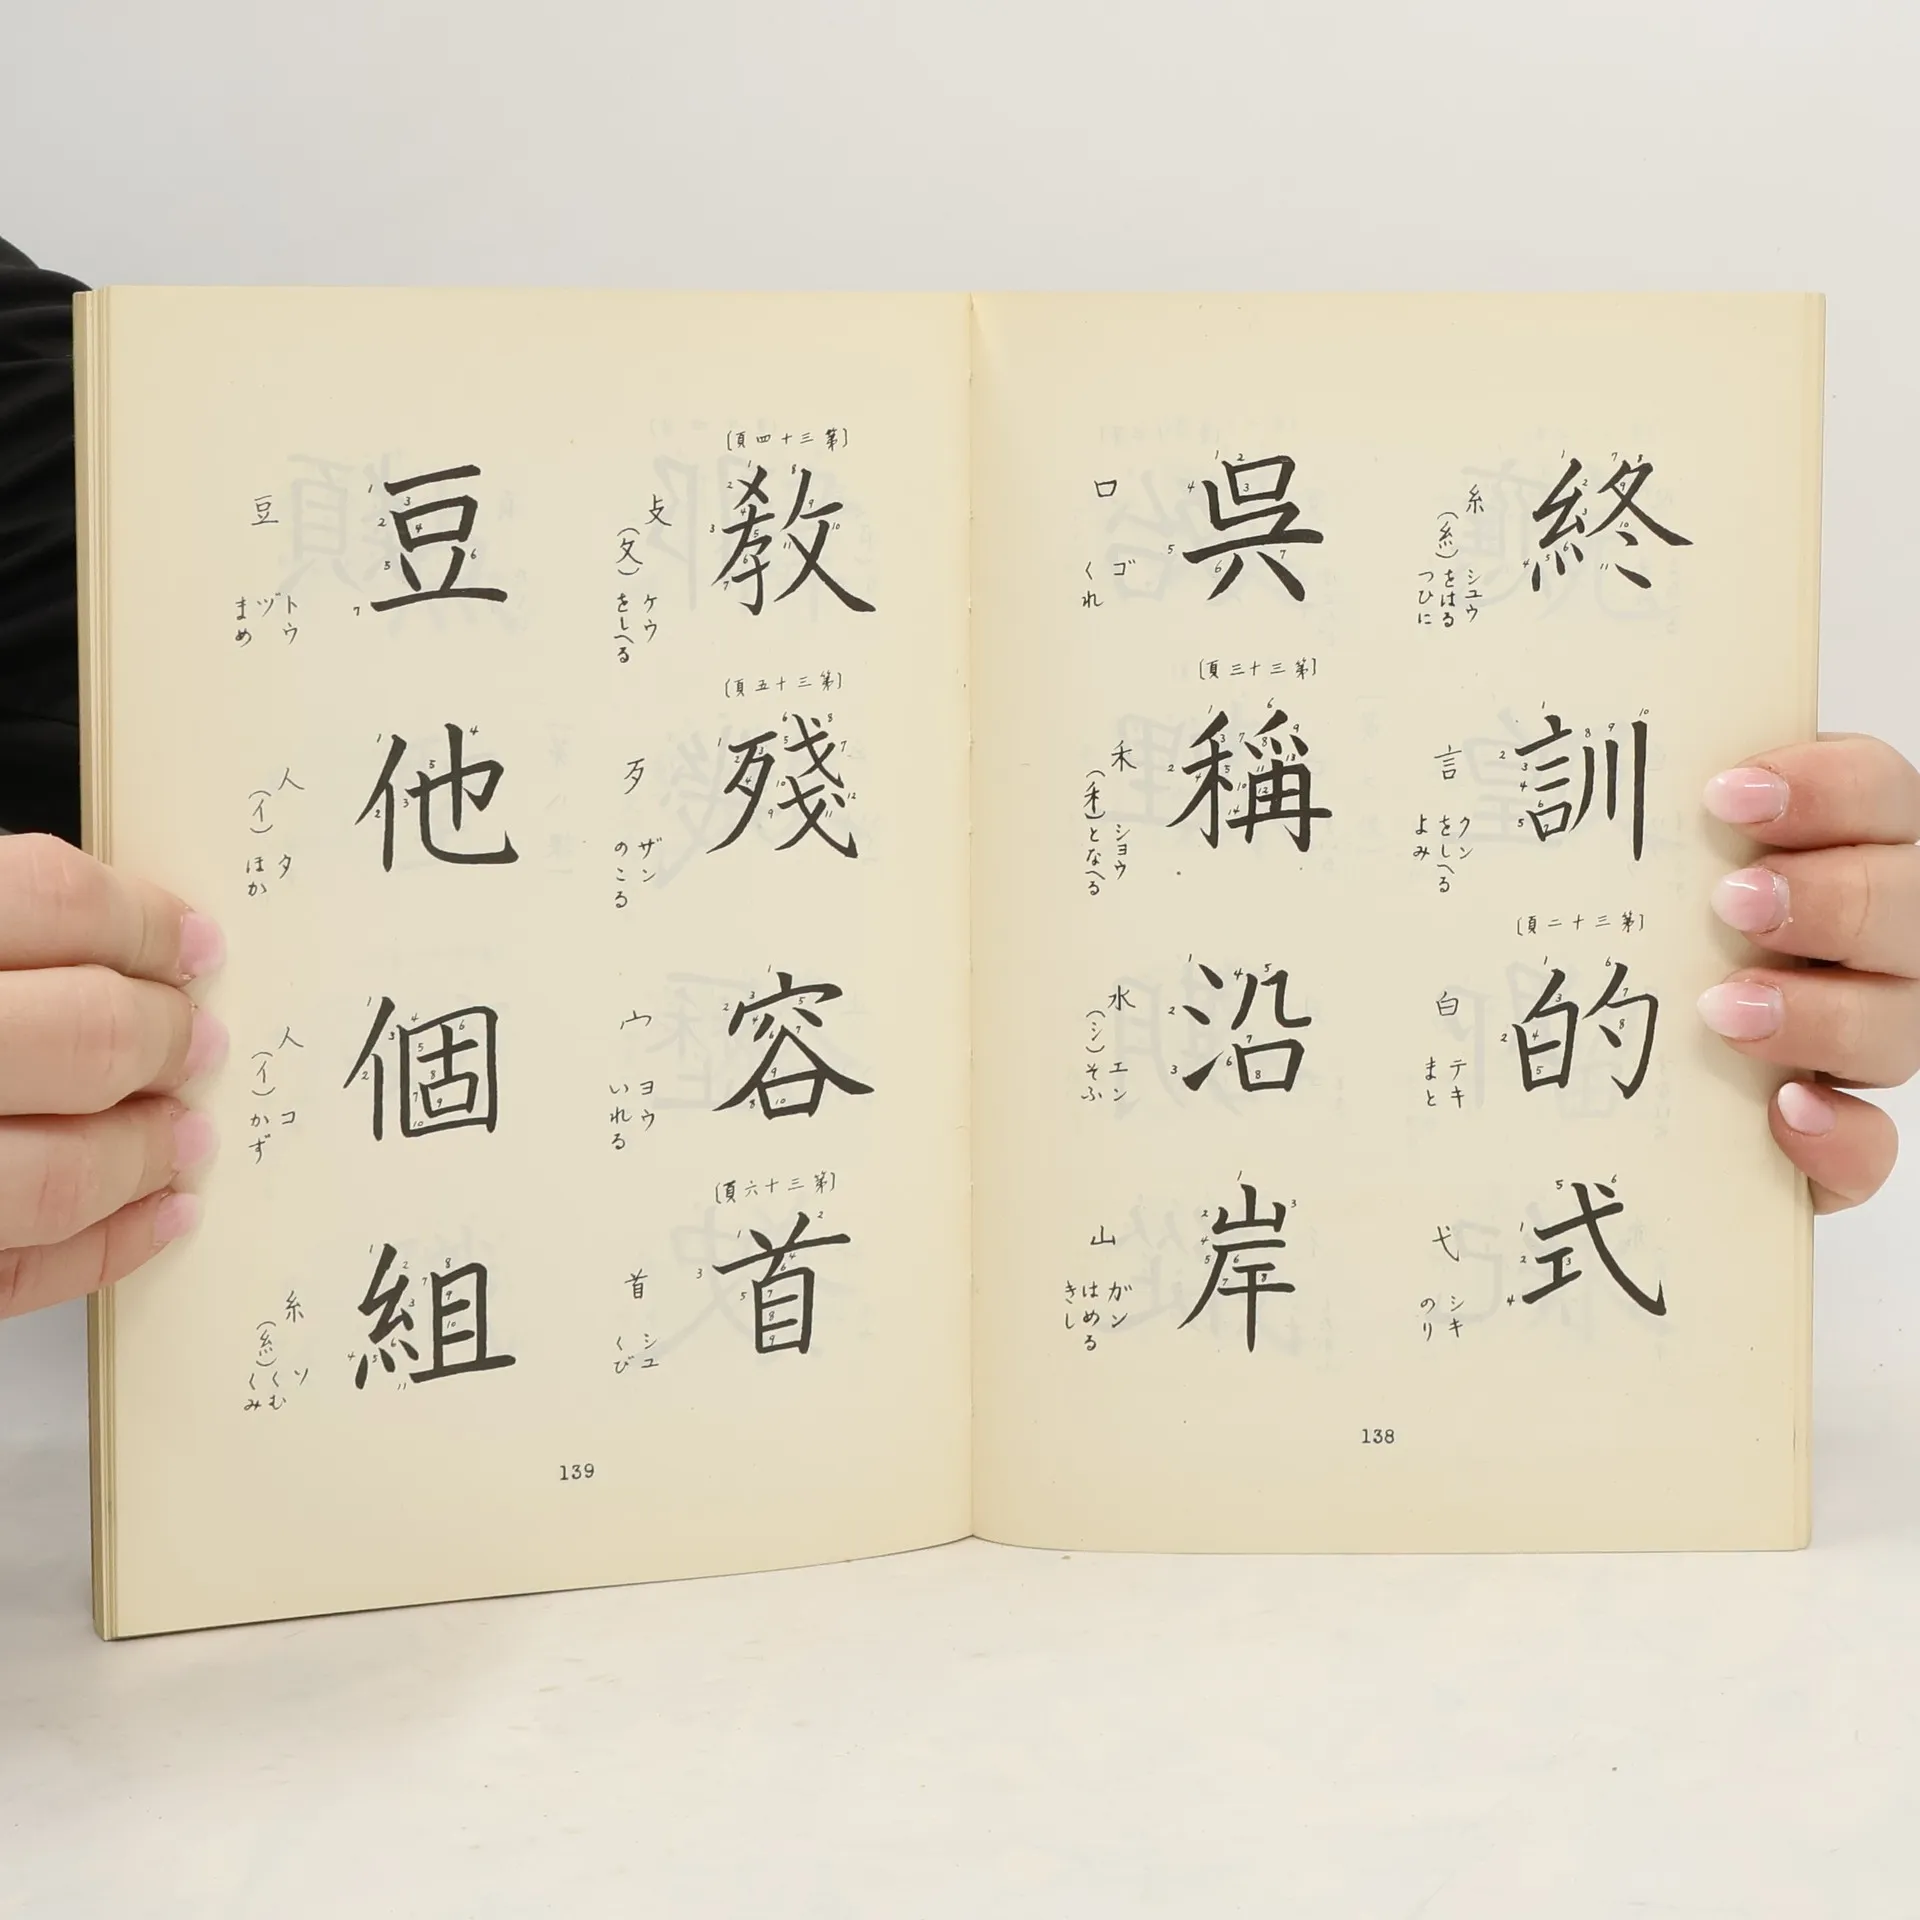 終
糸
(糹)
シユウ
をはる
つひに
訓
言
クン
をしへる
よみ
〔第三十二頁〕
的
白
テキ
まと
式
弋
シキ
のり
呉
口
ゴ
くれ
〔第三十三頁〕
稱
禾
(禾)
ショウ
となへる
沿
水
(氵)
エン
そふ
岸
山
ガン
はめる
きし
138
〔第三十四頁〕
敎
攴
(攵)
ケウ
をしへる
〔第三十五頁〕
殘
歹
ザン
のこる
容
宀
ヨウ
いれる
〔第三十六頁〕
首
首
シユ
くび
豆
豆
トウ
ヅ
まめ
他
人
(亻)
タ
ほか
個
人
(亻)
コ
かず
組
糸
(糹)
ソ
くむ
くみ
139